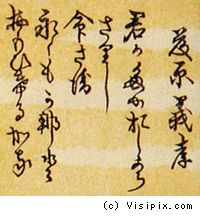 藤原義孝
君かためおしから
さりし
命さへ
永くもか那と
おもひける哉
(c) Visipix.com